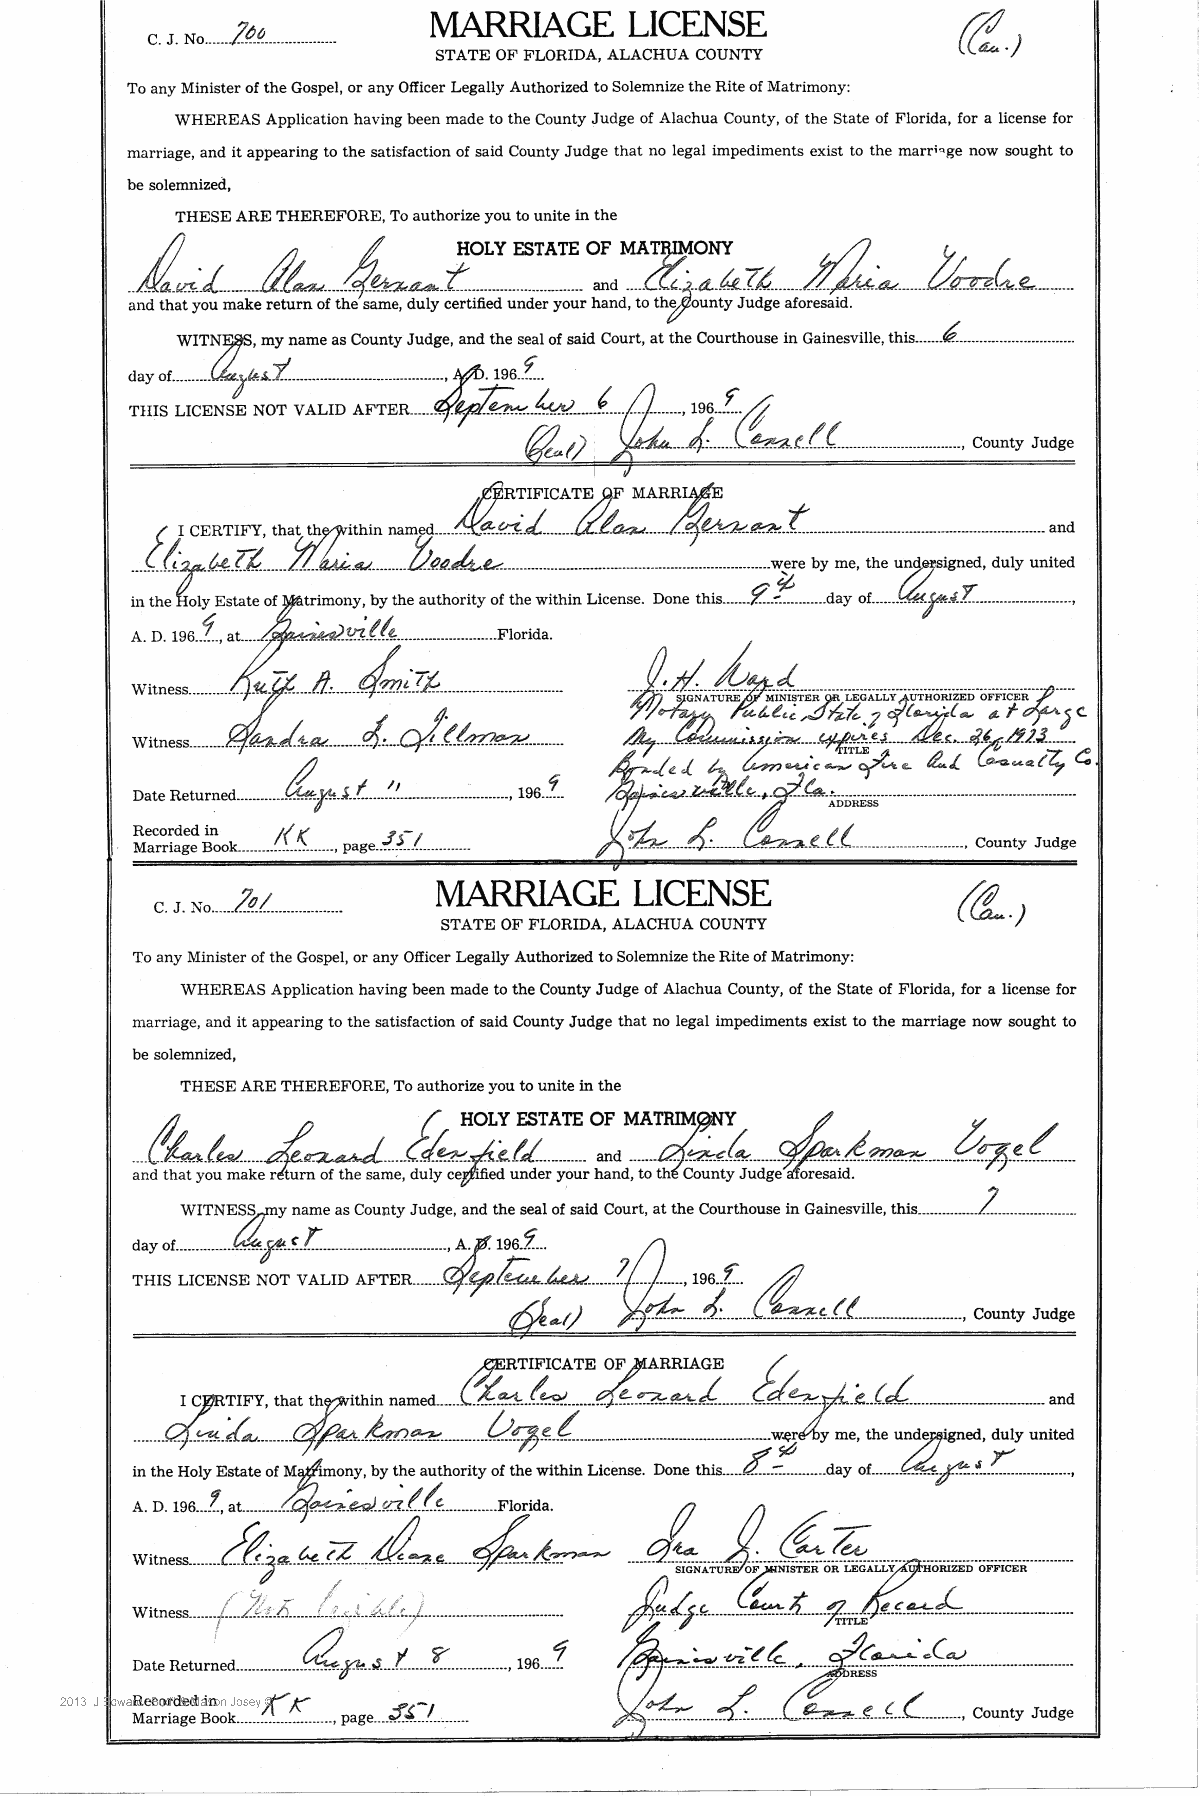 C. J. No. 700
MARRIAGE LICENSE
(Cau.)
STATE OF FLORIDA, ALACHUA COUNTY
To any Minister of the Gospel, or any Officer Legally Authorized to Solemnize the Rite of Matrimony:
WHEREAS Application having been made to the County Judge of Alachua County, of the State of Florida, for a license for
marriage, and it appearing to the satisfaction of said County Judge that no legal impediments exist to the marriage now sought to
be solemnized,
THESE ARE THEREFORE, To authorize you to unite in the
HOLY ESTATE OF MATRIMONY
David Alan Gernant and Elizabeth Maria Voodre
and that you make return of the same, duly certified under your hand, to the County Judge aforesaid.
WITNESS, my name as County Judge, and the seal of said Court, at the Courthouse in Gainesville, this 6
day of August, A. D. 1969
THIS LICENSE NOT VALID AFTER September 6, 1969
(Seal) John L. Connell, County Judge
CERTIFICATE OF MARRIAGE
I CERTIFY, that the within named David Alan Gernant and
Elizabeth Maria Voodre were by me, the undersigned, duly united
in the Holy Estate of Matrimony, by the authority of the within License. Done this 9th day of August,
A. D. 1969, at Gainesville Florida.
Witness Ruth A. Smith J. H. Ward
SIGNATURE OF MINISTER OR LEGALLY AUTHORIZED OFFICER
Notary Public State of Florida at Large
Witness Sandra L. Tillman My Commission expires Dec. 26, 1973
TITLE
Bonded by American Fire And Casualty Co.
Date Returned August 11, 1969 Gainesville, Fla.
ADDRESS
Recorded in
Marriage Book KK, page 351 John L. Connell, County Judge
C. J. No. 701
MARRIAGE LICENSE
(Cau.)
STATE OF FLORIDA, ALACHUA COUNTY
To any Minister of the Gospel, or any Officer Legally Authorized to Solemnize the Rite of Matrimony:
WHEREAS Application having been made to the County Judge of Alachua County, of the State of Florida, for a license for
marriage, and it appearing to the satisfaction of said County Judge that no legal impediments exist to the marriage now sought to
be solemnized,
THESE ARE THEREFORE, To authorize you to unite in the
HOLY ESTATE OF MATRIMONY
Charles Leonard Edenfield and Linda Sparkman Vogel
and that you make return of the same, duly certified under your hand, to the County Judge aforesaid.
WITNESS, my name as County Judge, and the seal of said Court, at the Courthouse in Gainesville, this 7
day of August, A. D. 1969
THIS LICENSE NOT VALID AFTER September 7, 1969
(Seal) John L. Connell, County Judge
CERTIFICATE OF MARRIAGE
I CERTIFY, that the within named Charles Leonard Edenfield and
Linda Sparkman Vogel were by me, the undersigned, duly united
in the Holy Estate of Matrimony, by the authority of the within License. Done this 8th day of August,
A. D. 1969, at Gainesville Florida.
Witness Elizabeth Diane Sparkman Ira J. Carter
SIGNATURE OF MINISTER OR LEGALLY AUTHORIZED OFFICER
Witness (Not legible) Judge Court of Record
TITLE
Date Returned August 8, 1969 Gainesville, Florida
ADDRESS
Recorded in
Marriage Book KK, page 351 John L. Connell, County Judge
2013 J Josey ©